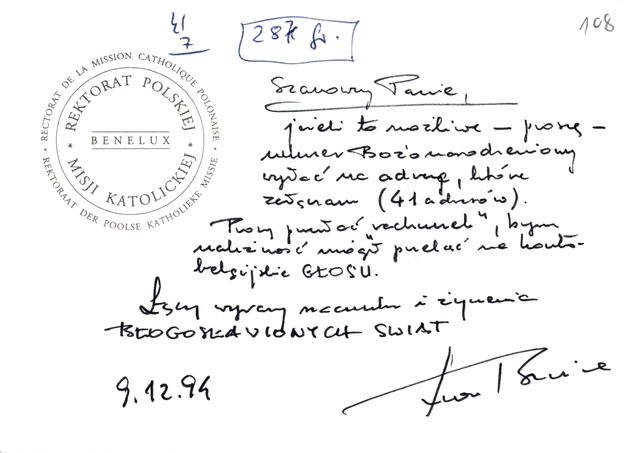 41
7
287 fr.
108
RECTORAT DE LA MISSION CATHOLIQUE POLONAISE
REKTORAT POLSKIEJ
BENELUX
MISJI KATOLICKIEJ
REKTORAAT DER POOLSE KATHOLIEKE MISSIE
Szanowny Panie,
jeśli to możliwe – proszę –
numer Bożonarodzeniowy
wysłać na adresy, które
załączam (41 adresów).
Proszę przesłać "rachunek", bym
należność mógł przelać na konto
belgijskie GŁOSU.
Łączę wyrazy szacunku i życzenia
BŁOGOSŁAWIONYCH ŚWIĄT
9.12.94